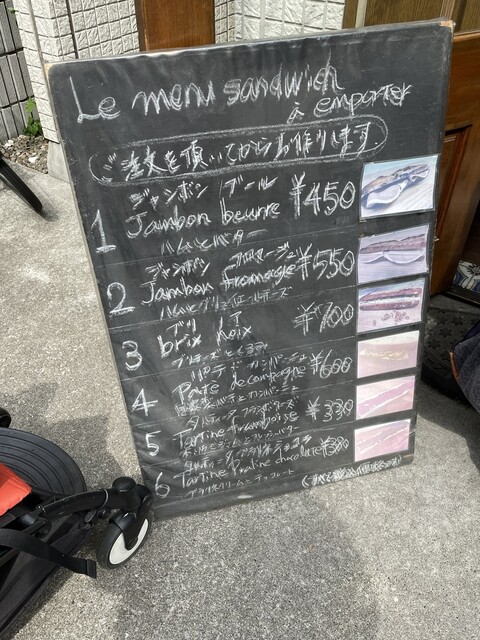 Le menu sandwich
à emporter
ご注文を頂いてからお作りします
ジャンボン ブール
1 Jambon beurre ¥450
ハムとバター
ジャンボン フロマージュ
2 Jambon fromage ¥550
ハムとグリュイエールチーズ
ブリ
3 brix noix ¥700
ブリチーズとくるみ
パテ ド カンパーニュ
4 Pate de campagne ¥600
タルティーヌ フランボワーズ
5 Tartine framboise ¥330
タルティーヌ プラリネ ショコラ
6 Tartine praline chocolat ¥380
プラリネクリームとチョコレート